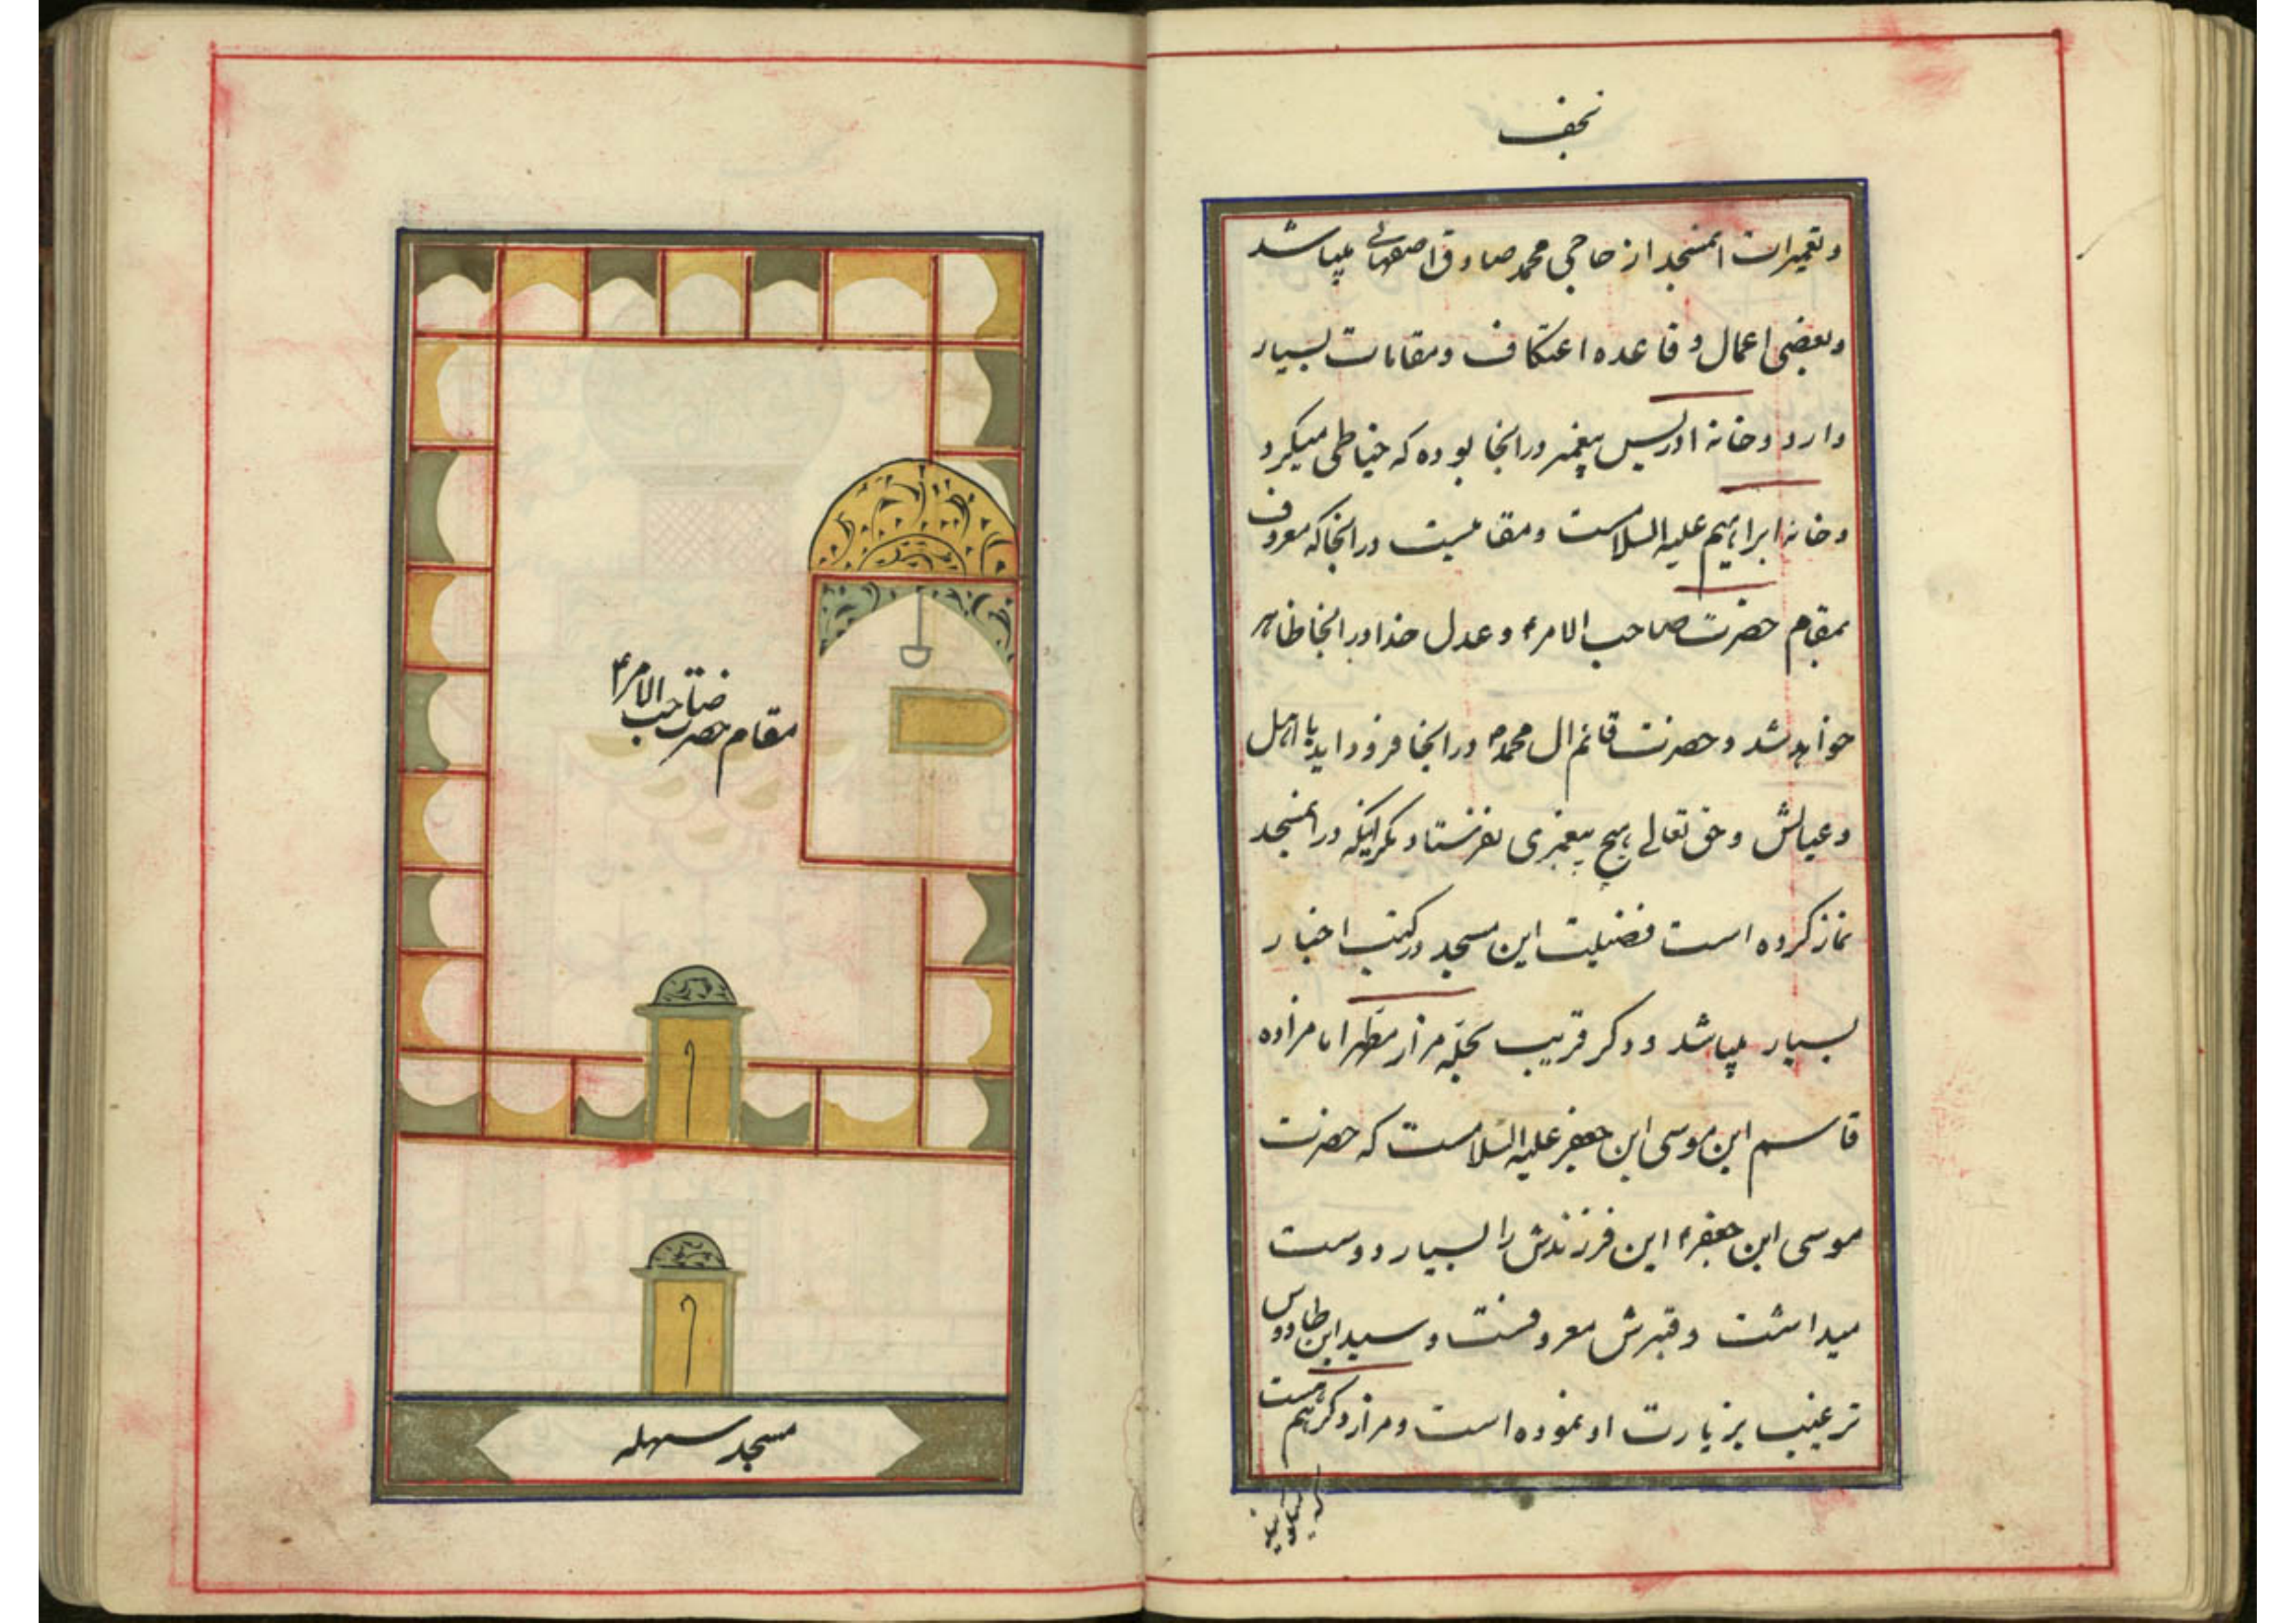 نجف
و تعمیرات المسجد از حاجی محمد صادق اصفهانی میباشد
و بعضی اعمال و قاعده اعتکاف و مقامات بسیار
دارد و خانه ادریس پیغمبر در انجا بوده که خیاطی میکرد
و خانه ابراهیم علیه السلامست و مقامیست در انجا که معروف
بمقام حضرت صاحب الامر۴ و عدل خدا در انجا ظاهر
خواهد شد و حضرت قائم ال محمد۴ در انجا فرود اید با اهل
و عیالش و حق تعالی هیچ پیغمبری نفرستاد مگر اینکه در المسجد
نماز کرده است فضیلت این مسجد در کتب اخبار
بسیار میباشد و دکر قریب بحله مزار مطهر امامزاده
قاسم ابن موسی ابن جعفر علیه السلامست که حضرت
موسی ابن جعفر۴ این فرزندش را بسیار دوست
میداشت و قبرش معروفست و سید ابن طاووس
ترغیب بزیارت او نموده است و مزار دکر هم هست
که میکویند
مقام حضرت صاحب الامر۴
مسجد سهله